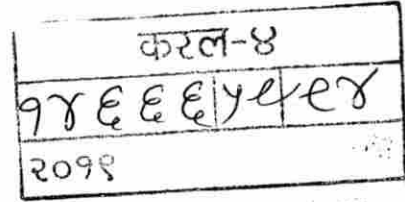 करल-४
१४६६६|५९|९४
२०१९